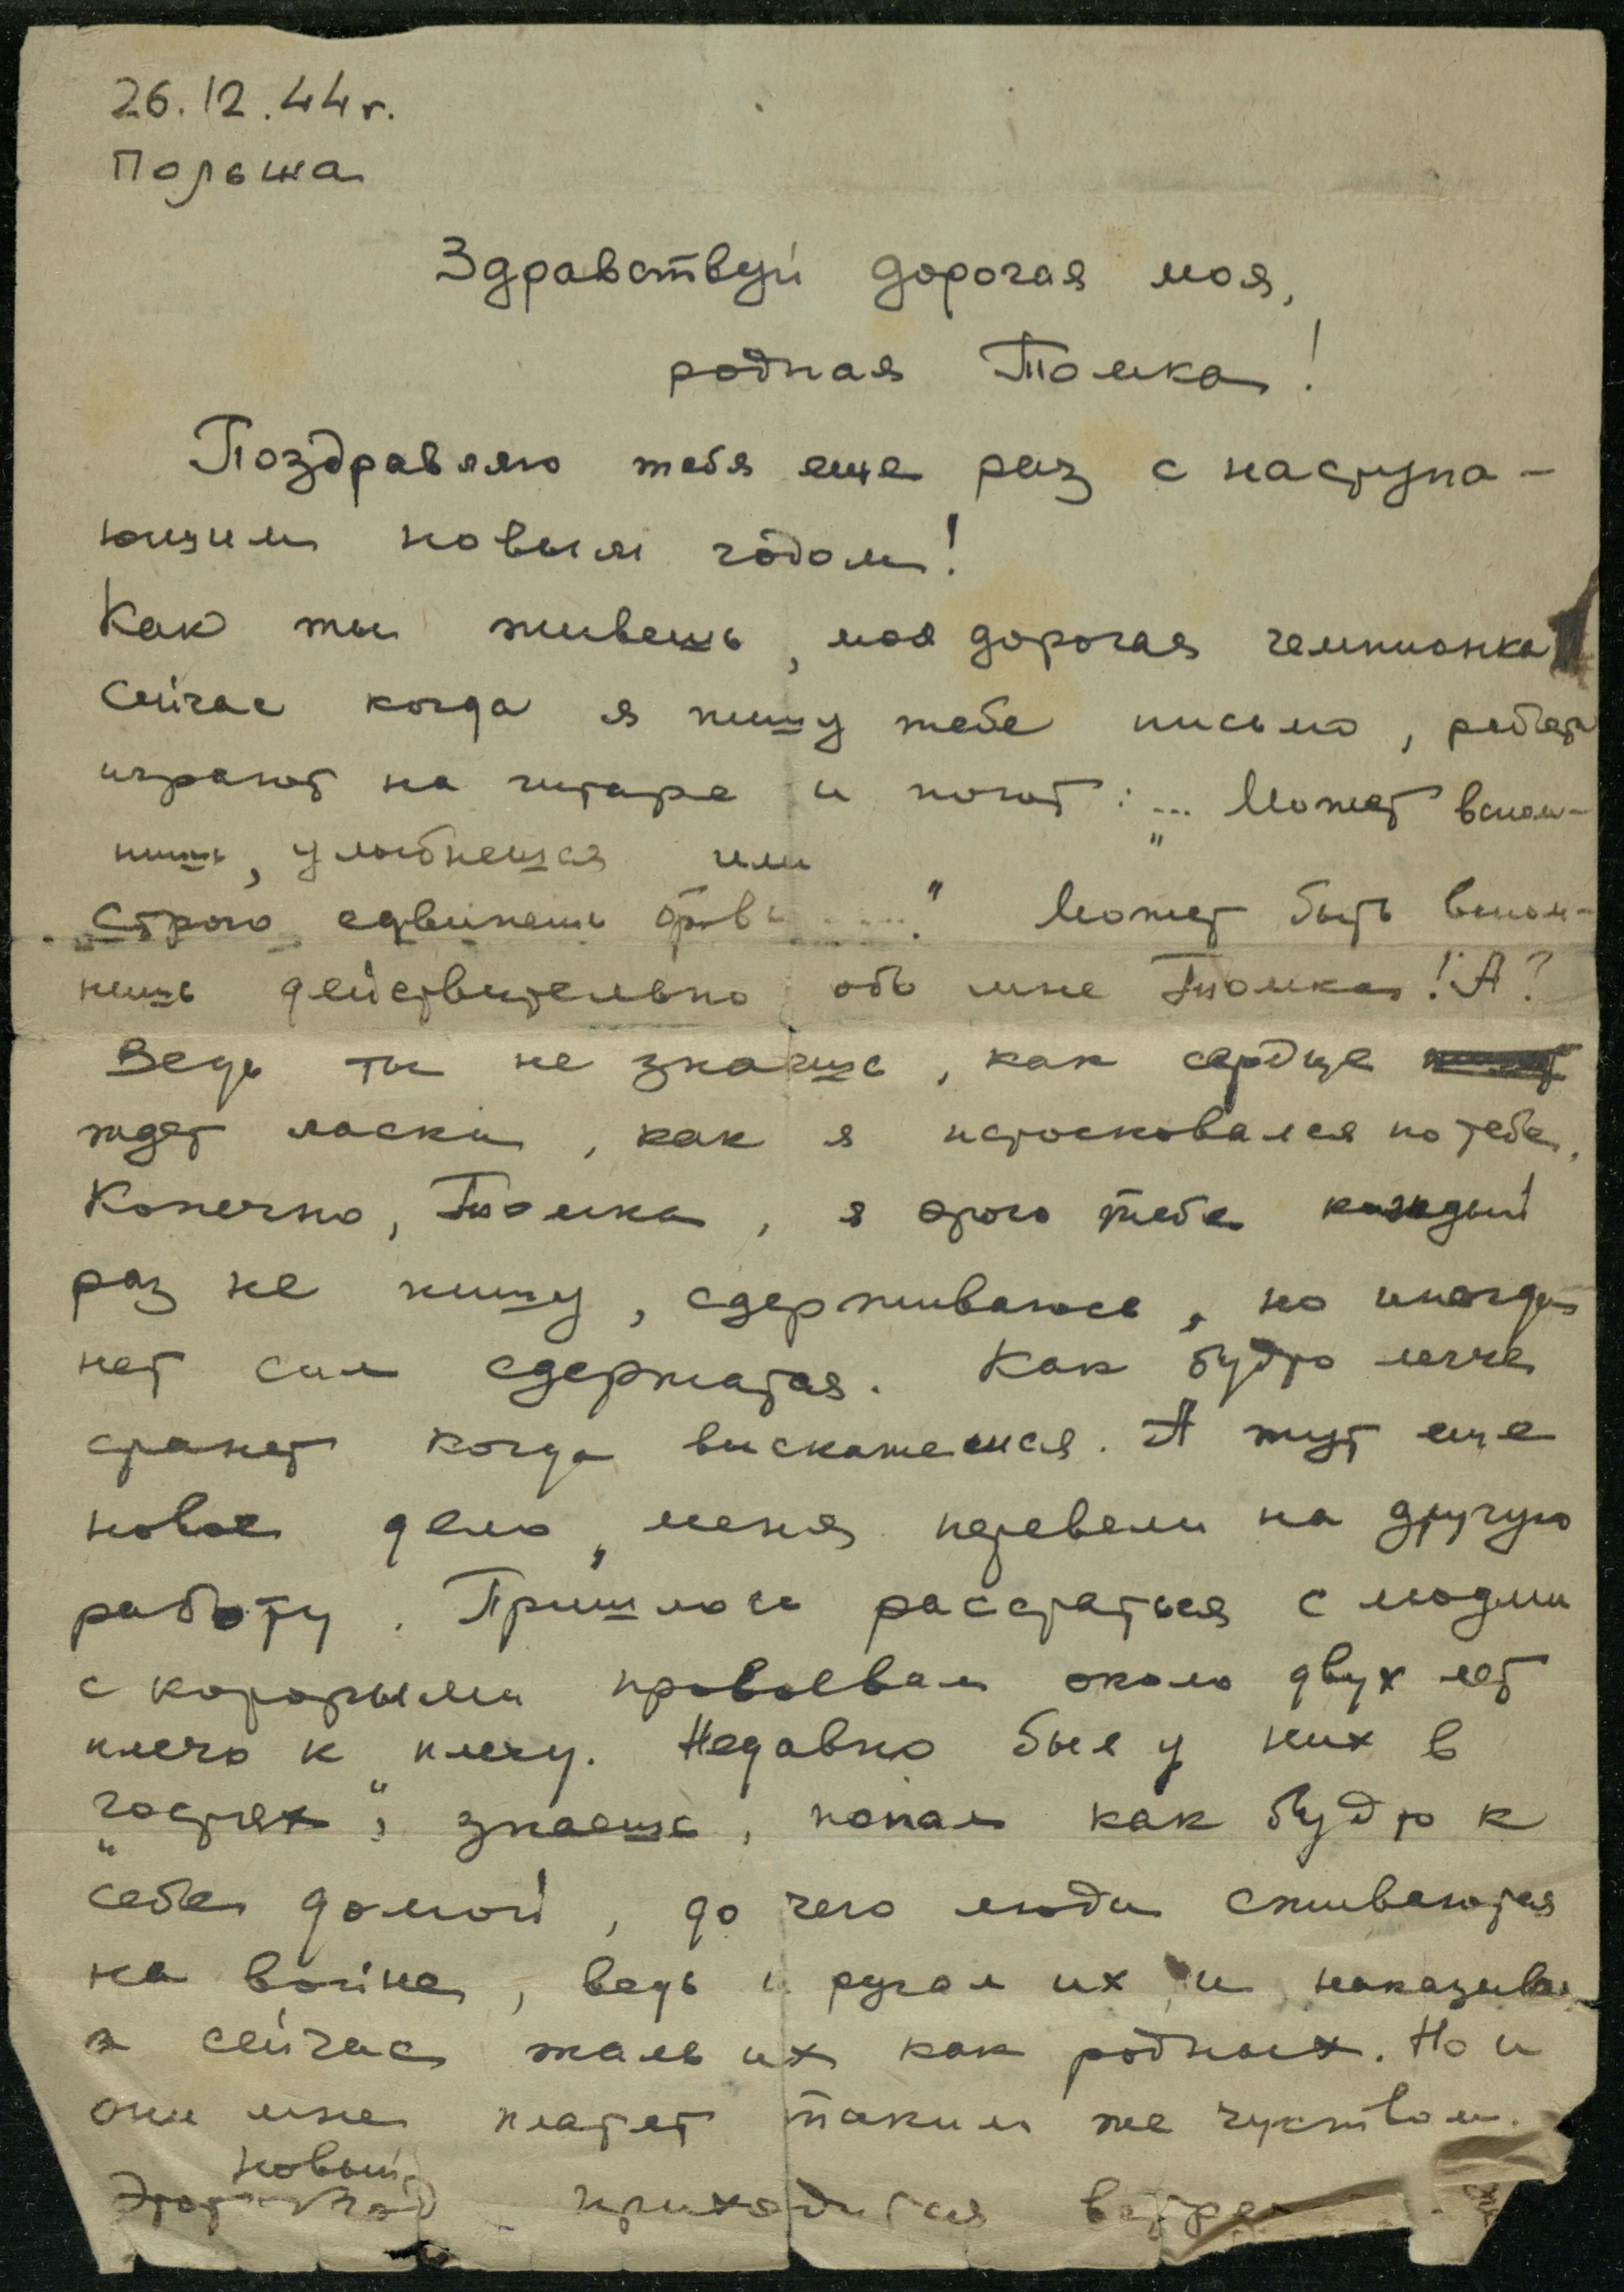 26.12.44г.
Польша
Здравствуй дорогая моя,
родная Томка!
Поздравляю тебя еще раз с наступа-
ющим новым годом!
Как ты живешь, моя дорогая чемпионка
Сейчас когда я пишу тебе письмо, ребята
играют на гитаре и поют: „... Может вспом-
нишь, улыбнешься или
строго сдвинешь бровь ....." Может быть вспом-
нишь действительно обо мне Томка! А?
Ведь ты не знаешь, как сердце
ждет ласки, как я истосковался по тебе.
Конечно, Томка, я этого тебе каждый
раз не пишу, сдерживаюсь, но иногда
нет сил сдержатся. Как будто легче
станет когда выскажешся. А тут еще
новое дело, меня перевели на другую
работу. Пришлось расстаться с людми
с которыми провоевал около двух лет
плечо к плечу. Недавно был у них в
„гостях", знаешь, попал как будто к
себе домой, до чего люди сживаются
на войне, ведь и ругал их, и наказывал
а сейчас жаль их как родных. Но и
они мне платят таким же чуством.
новый
Этот год приходится